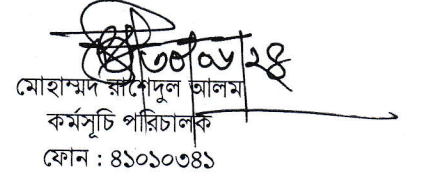 ৩০/০৬/২৪
মোহাম্মদ রাশেদুল আলম
কর্মসূচি পরিচালক
ফোন : ৪১০১০৩৪১